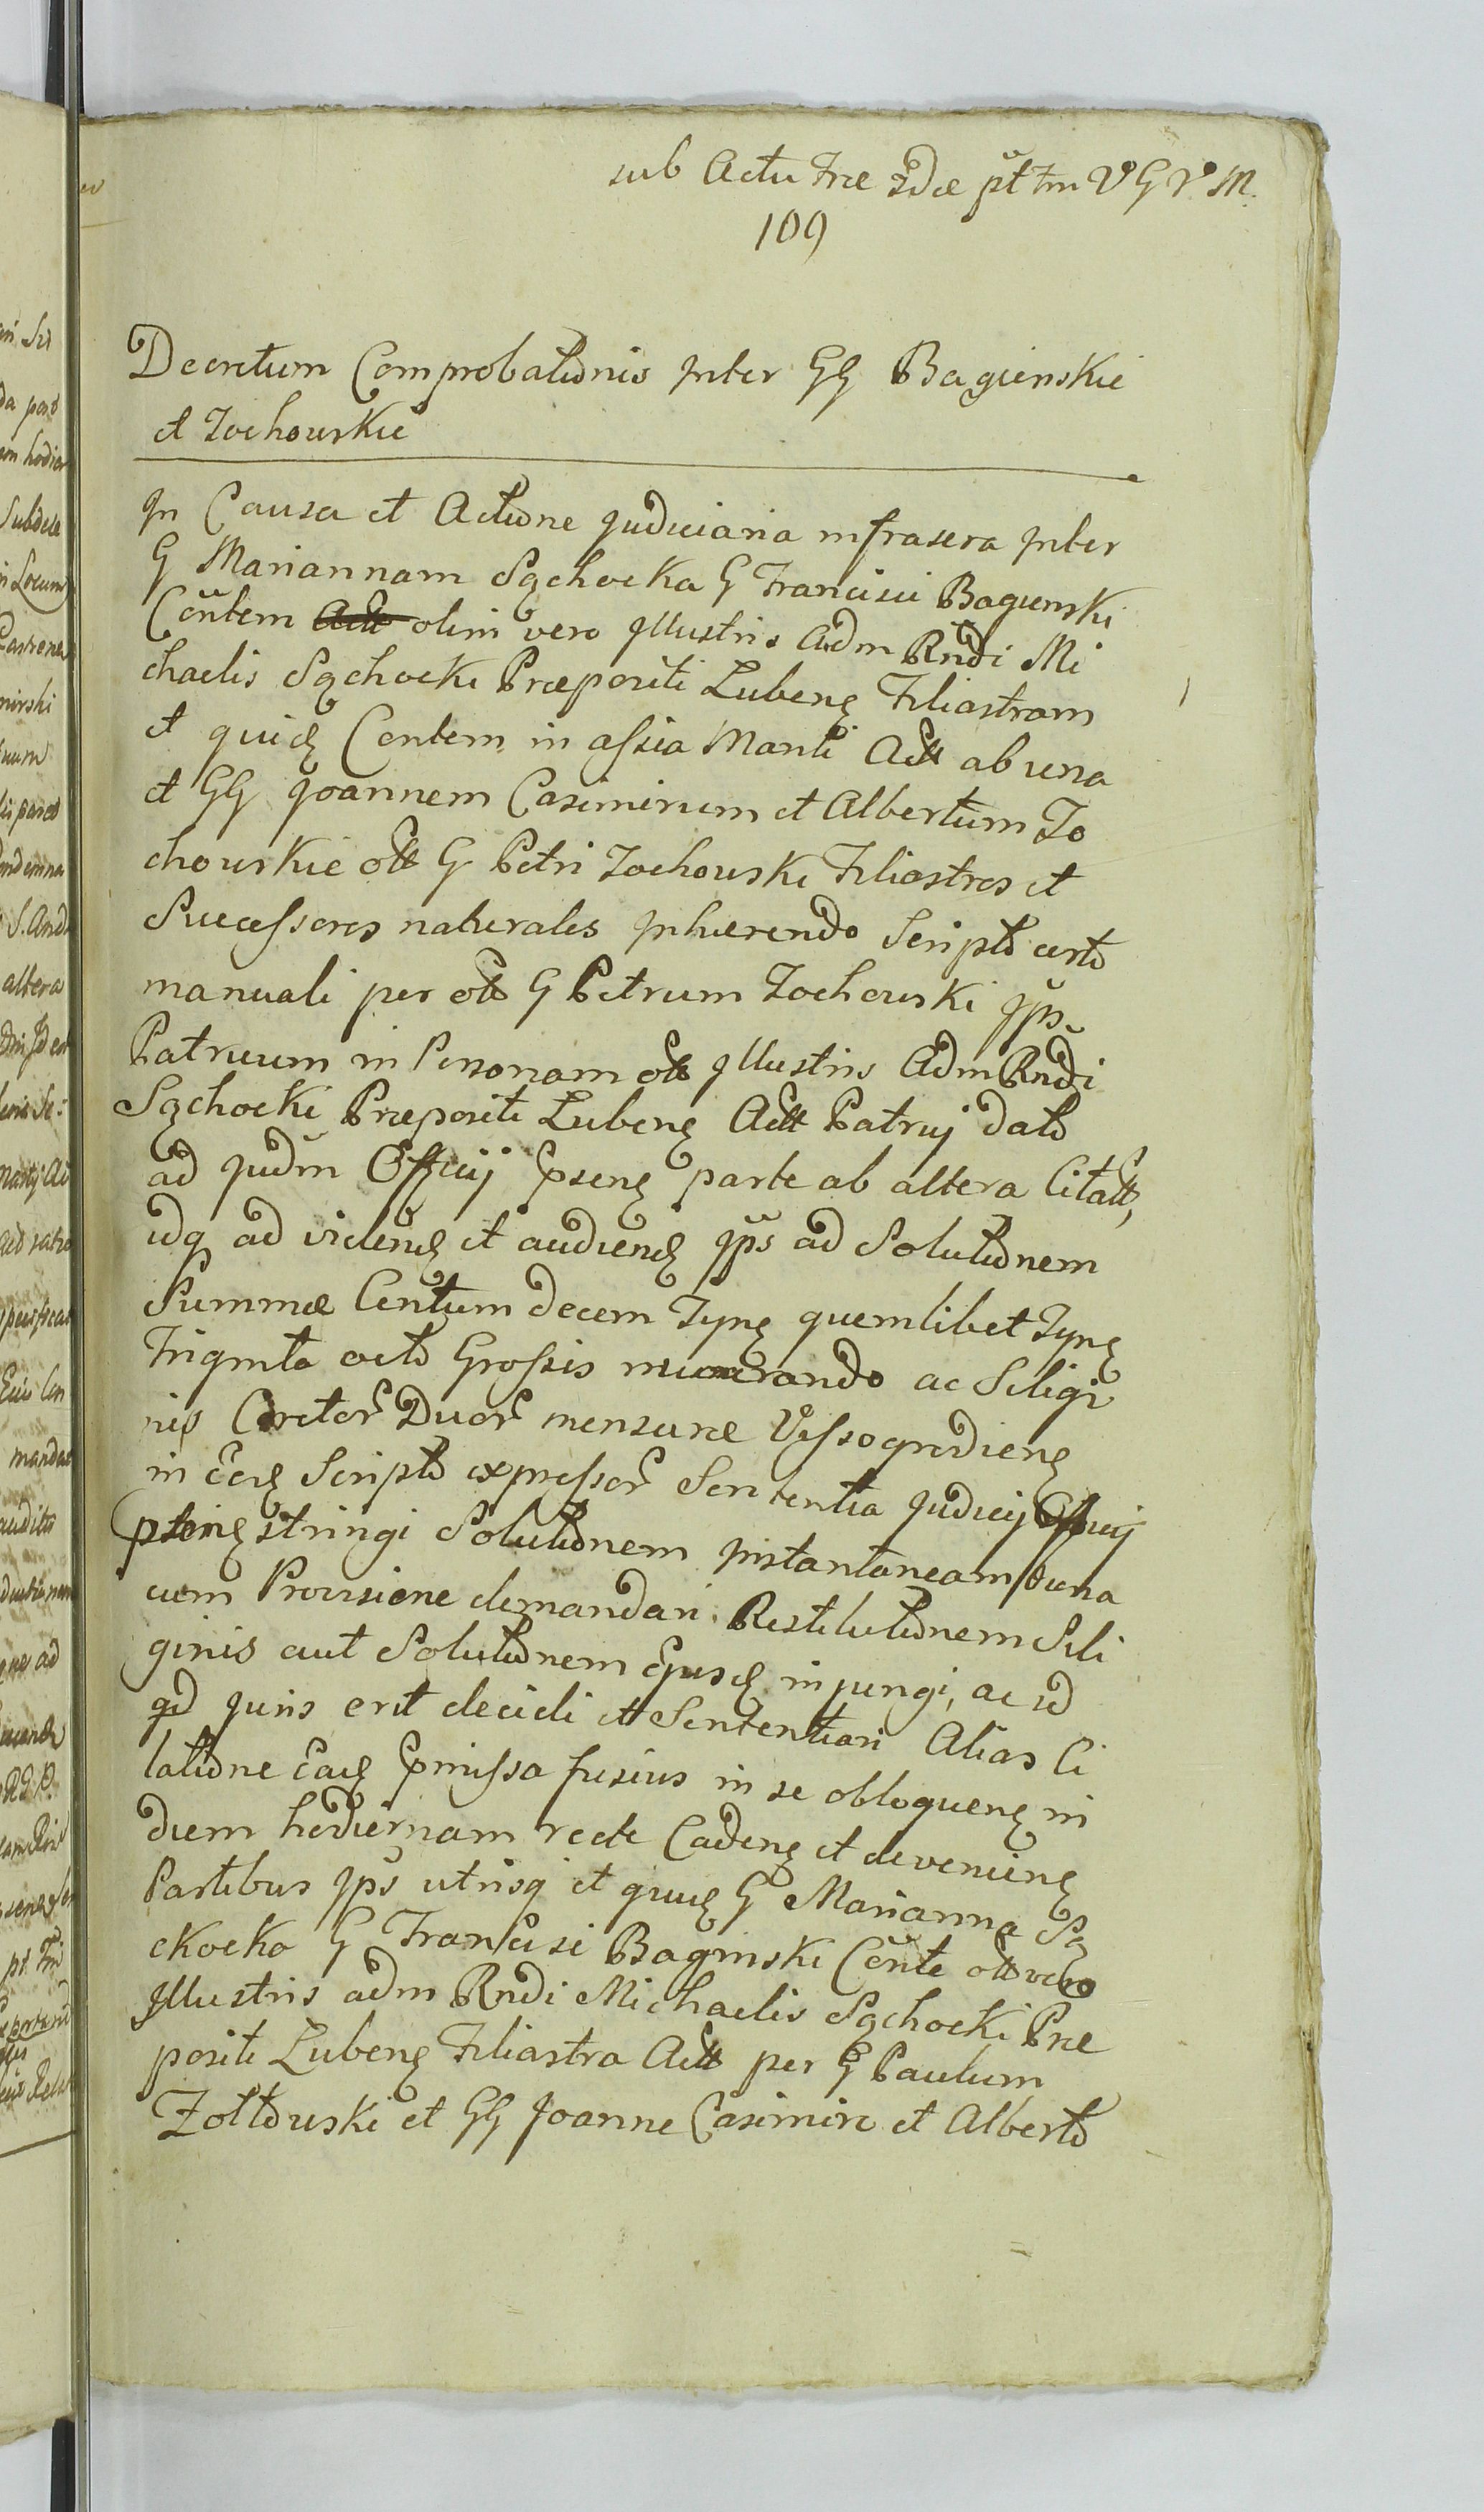 sub Actu Fræ 2dæ pt Fm V G V M.
109
Decretum Comprobationis Inter GG Bagienskie
et Zochowskie
In Causa et Actione Judiciaria infrascra Inter
G Mariannam Sąchocka G Francisci Bagienski
Contem olim vero Illustris Adm Rndi Mi
chaelis Sąchocki Præpositi Lubenę Filiastram
et quidę Contem in assia Marti Actt ab una
et GG Joannem Casimirum et Albertum Zo
chowskie ott G Petri Zochowski Filiastros et
Successores naturales Inhærendo Scripto certo
manuali per ott G Petrum Zochowski Ips
Patruum in Personam ott Illustris Adm Rndi
Sąchocki Præpositi Lubenę Actt Patruj dato
ad Judm Officij psenę parte ab altera Citatt,
idq ad videndę et audiendę Ips ad Solutionem
Summæ Centum decem Tynę quemlibet Tynę
Triginta octo Grossis numerando ac Siligi
nis Coretor Duor mensuræ Vissogrodienę
in Eodę Scripto expressor Sententia Judicij Officij
psenę stringi Solutionem Instantaneam una
cum Provisione demandari Restitutionem Sili
ginis aut Solutionem Ejusdę injungi, ac id
qd Juris erit decidi ett Sententiari Alias Ci
tatione Eadę pmissa fusius in se obloquenę in
diem hodiernam recte Cadenę et devenienę
Partibus Ips utrisq et quidę G Marianna Są
chocka G Francisci Baginski Conte ott vero
Illustris adm Rndi Michaelis Sąchocki Præ
positi Lubenę Filiastra Actt per G Paulum
Zołtowski et GG Joanne Casimiro et Alberto